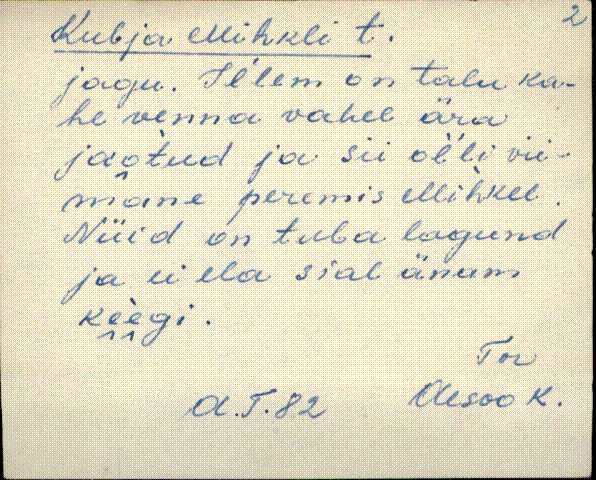 2
Kubja Mihkli t.
jagu. Il'lem on talu ka-
he venna vahel ära
jaòtud ja sii ol'li vii-
mäne peremis Mìhkel.
Nüid on tuba lagund
ja ei ela sial änam
kèègi.
Tor
A.T.82 Alesoo K.